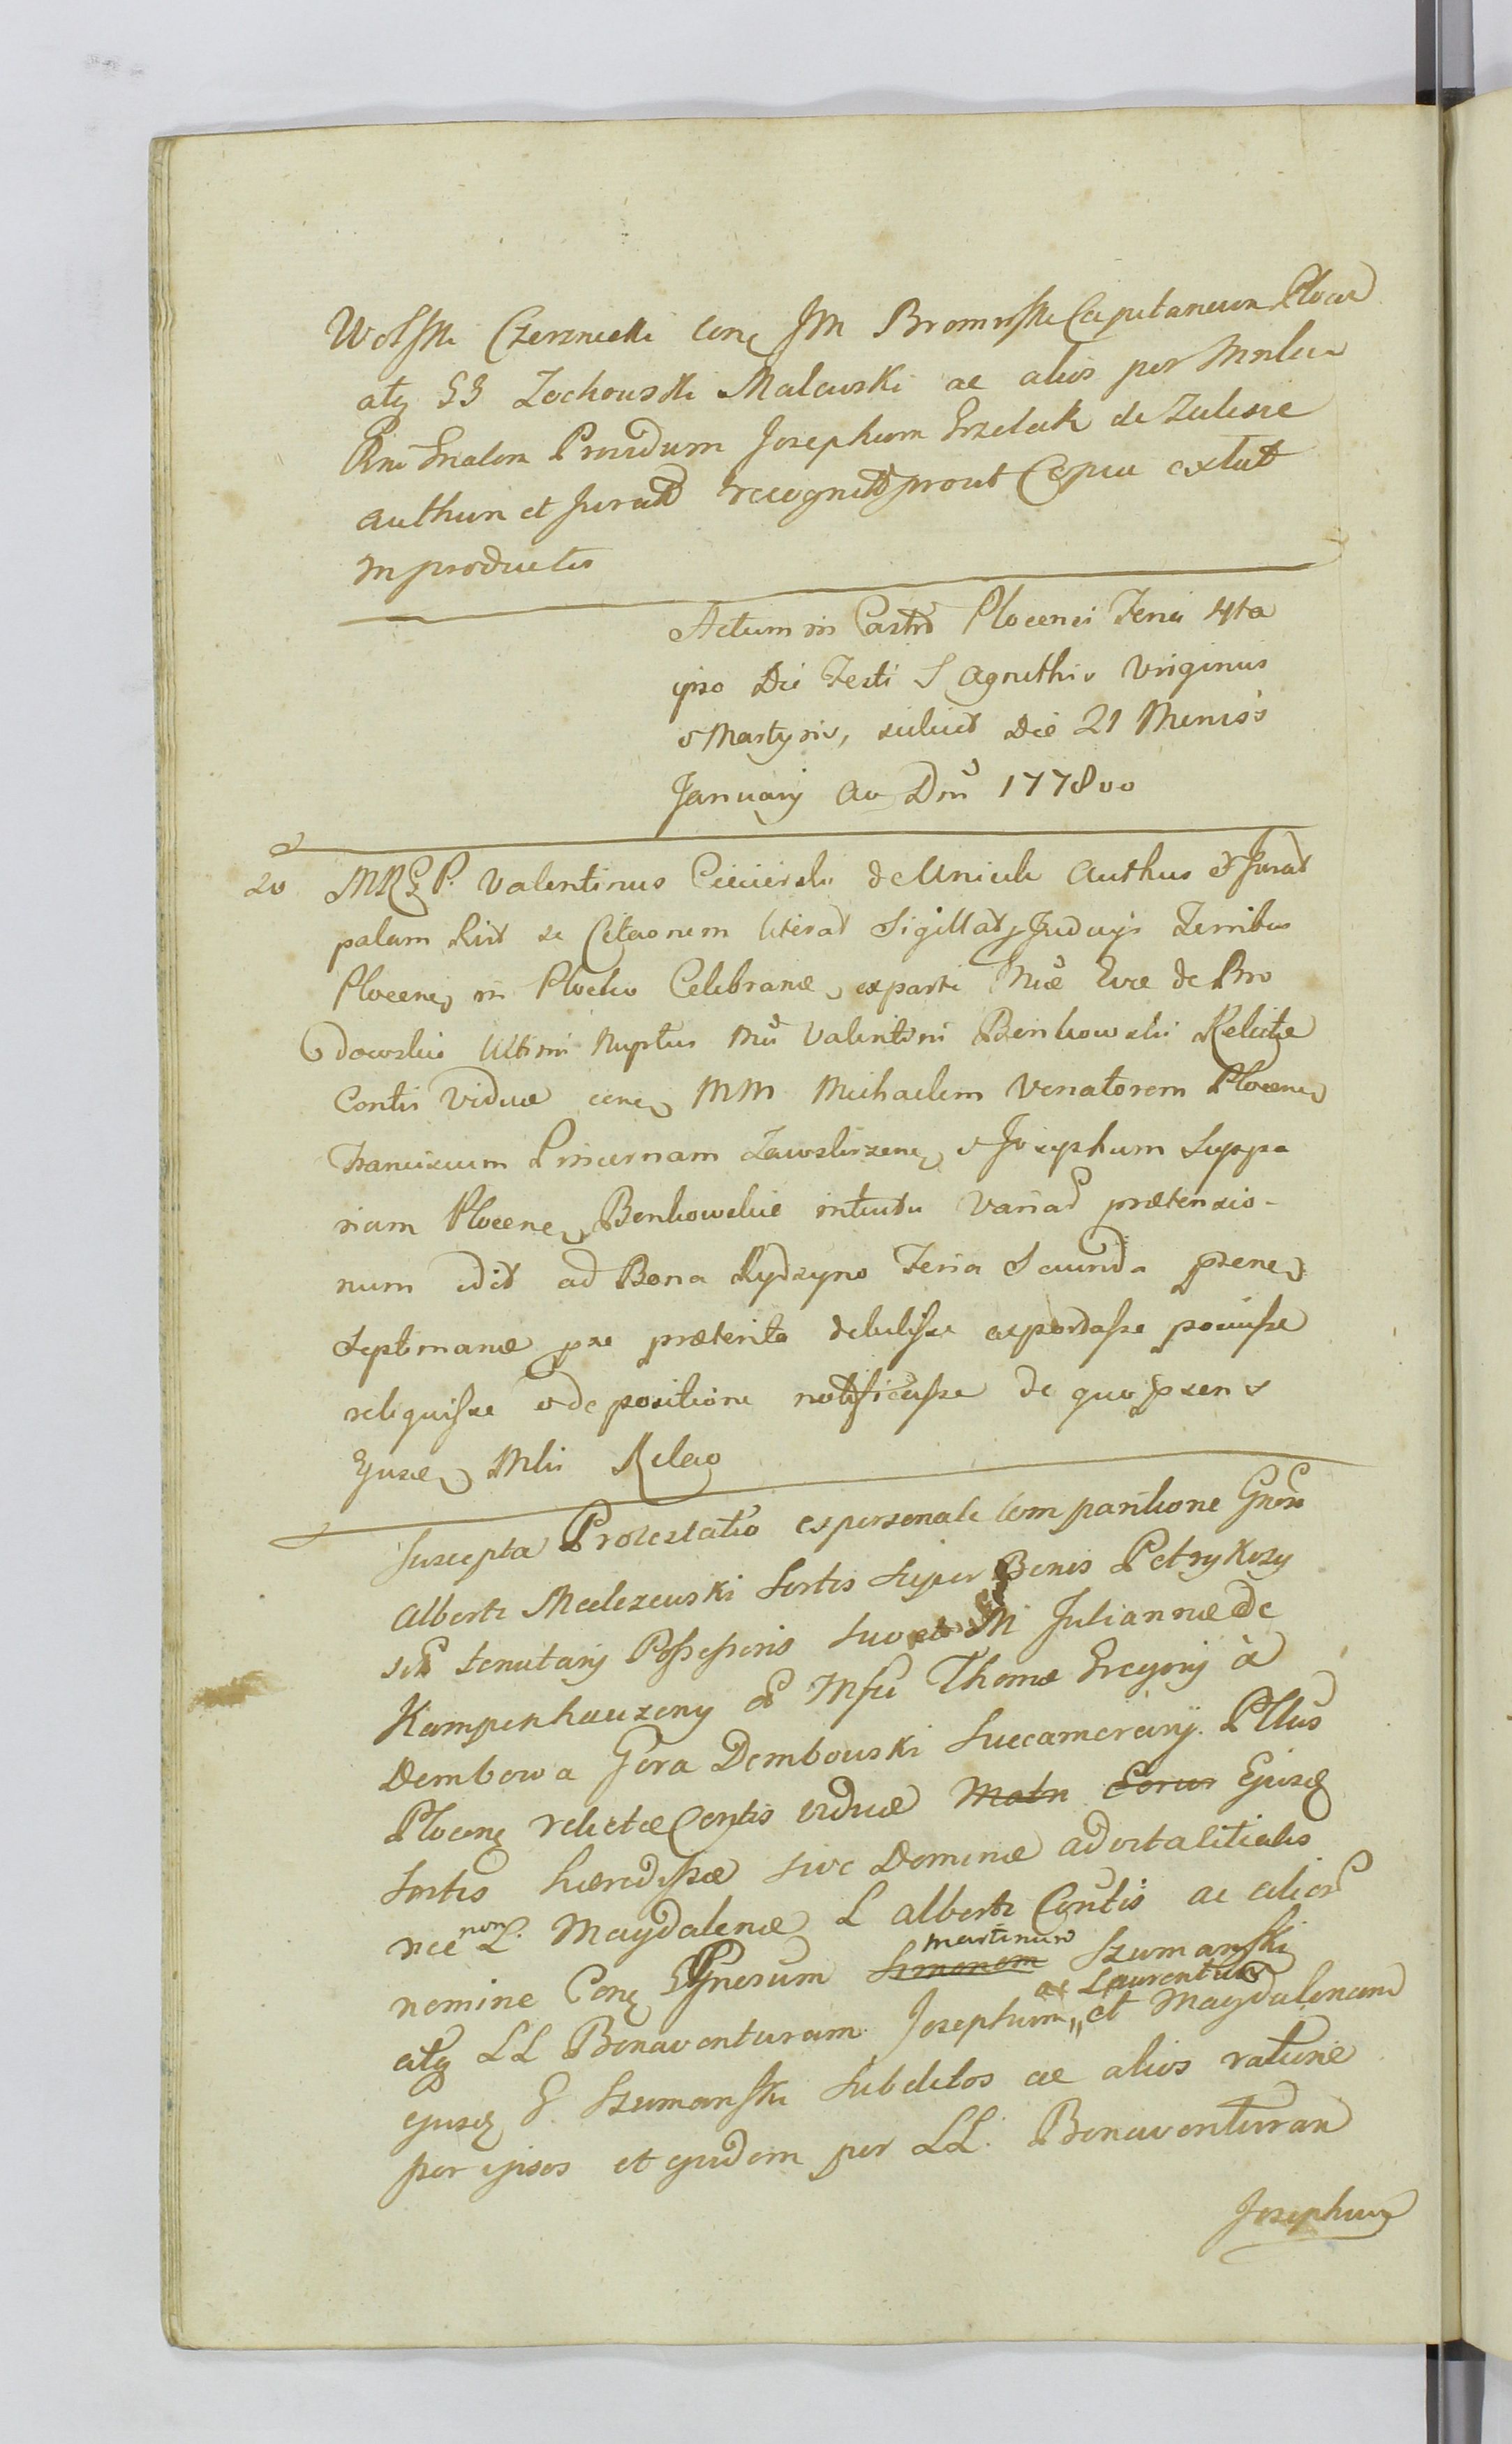 Wolski Czerznicki conq JM Bromirski Capitaneum Plocen
atq GG Zochowski Malawski ac alios per
Rni Gnalem Providum Josephum Grzelak de Zalesie
authum et Jurat recognit prout Copia extat
in productis
Actum in Castro Plocensi Feria 4ta
ipso Die Festi S Agnethis Virginis
& Martyris, scilicet Die 21 Mensis
January Ao Dni 1778vo
20 MRGP. Valentinus de Unieck Authus & Jurat
palam Rtt se Citaonem literat Sigillat Judicijs Terribus
Plocens in Plocko Celebran, exparte Mcae Evae de Bro
dowskie Ultimi Nuptus Mci Valentini Benkowski Relictae
Contis Viduae cone MM Michaelem Venatorem Plocens
Franciscum Pincernam Zawskrzens & Josephum Suppa
riam Plocens Benkowskie intuitu Variar praetensio-
num edit ad Bona Rydzyno Feria Secunda psens
Septimanae pxe praeterita detulisse asportasse posuisse
reliquisse & de positione notificasse de quo psens
Ejusd Mlis Relao
Suscepta Protestatio ex personali Comparitione Gnosi
Alberti Meelezewski Sortis super Bonis Petrykozy
sitt tenutarij Possessoris suo et M Juliannae de
Kampenhauzeny & Mfci Thomae Gregorij à
Dembowa Gora Dembowski Succamerarij Pttus
Plocens relictae Contis viduae Matri Eorun Ejusd
Sortis haeredissae sive Dominae advitalitialis
nec non L. Magdalenae L Alberti Contis ac alior
martinum
nomine Conq Gnosum Simonem Szumanski
ac Laurentium
atq LL Bonaventuram Josephum,, et Magdalenam
ejusd G. Szumanski Subditos ac alios ratione
per ipsos et quidem per LL. Bonaventuram
Josephum